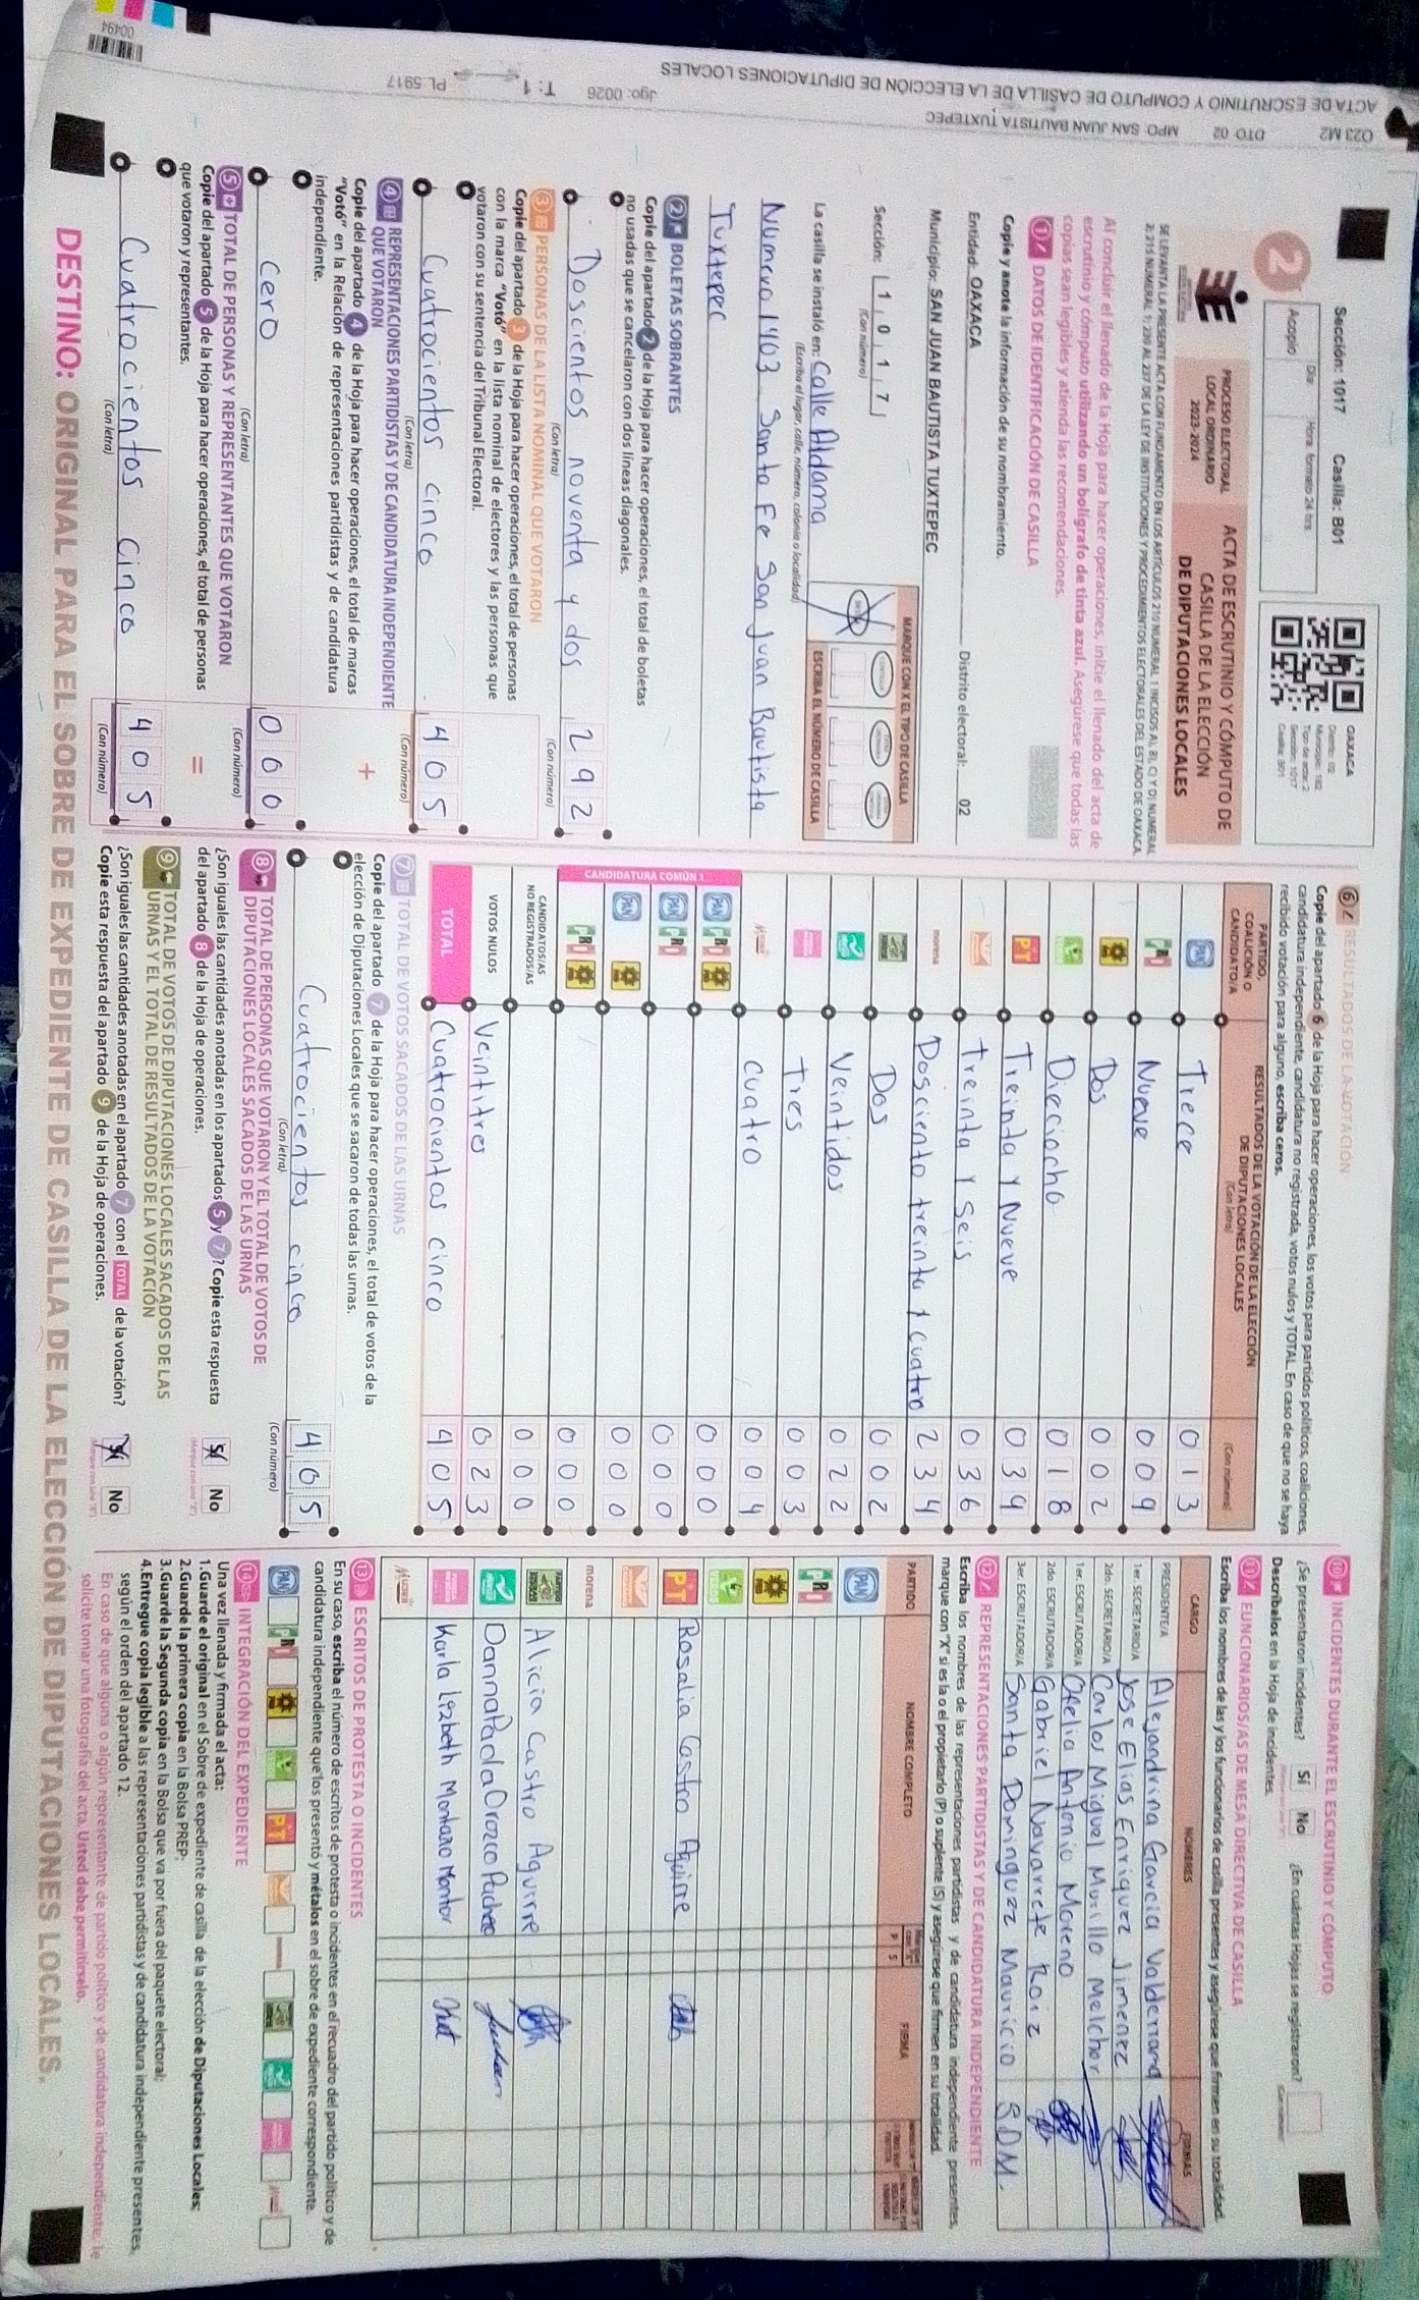 023 M2 DTO 02 MPO. SAN JUAN BAUTISTA TUXTEPEC
ACTA DE ESCRUTINIO Y CÓMPUTO DE CASILLA DE LA ELECCIÓN DE DIPUTACIONES LOCALES
Jgo: 0026 T: 1 PL 5917
00494
Sección: 1017 Casilla: B01
Día: Hora: formato 24 hrs
2 Acopio
OAXACA
Sección: 1017
Casilla: B01
PROCESO ELECTORAL
LOCAL ORDINARIO
2023-2024
ACTA DE ESCRUTINIO Y CÓMPUTO DE
CASILLA DE LA ELECCIÓN
DE DIPUTACIONES LOCALES
Al concluir el llenado de la Hoja para hacer operaciones, inicie el llenado del acta de
escrutinio y cómputo utilizando un bolígrafo de tinta azul. Asegúrese que todas las
copias sean legibles y atienda las recomendaciones.
1 DATOS DE IDENTIFICACIÓN DE CASILLA
Copie y anote la información de su nombramiento.
Entidad: OAXACA Distrito electoral: 02
Municipio: SAN JUAN BAUTISTA TUXTEPEC
Sección: 1 0 1 7
(Con número)
MARQUE CON X EL TIPO DE CASILLA
ESCRIBA EL NÚMERO DE CASILLA
La casilla se instaló en: Calle Aldama
(Escriba el lugar, calle, número, colonia o localidad)
Número 1403 Santa Fe San Juan Bautista
Tuxtepec
2 BOLETAS SOBRANTES
Copie del apartado 2 de la Hoja para hacer operaciones, el total de boletas
no usadas que se cancelaron con dos líneas diagonales.
Doscientos noventa y dos 2 9 2
(Con letra) (Con número)
3 PERSONAS DE LA LISTA NOMINAL QUE VOTARON
Copie del apartado 3 de la Hoja para hacer operaciones, el total de personas
con la marca "Votó" en la lista nominal de electores y las personas que
votaron con su sentencia del Tribunal Electoral.
Cuatrocientos cinco 4 0 5
(Con letra) (Con número)
4 REPRESENTACIONES PARTIDISTAS Y DE CANDIDATURA INDEPENDIENTE
QUE VOTARON
Copie del apartado 4 de la Hoja para hacer operaciones, el total de marcas
"Votó" en la Relación de representaciones partidistas y de candidatura
independiente.
+
cero 0 0 0
(Con letra) (Con número)
5 TOTAL DE PERSONAS Y REPRESENTANTES QUE VOTARON
Copie del apartado 5 de la Hoja para hacer operaciones, el total de personas
que votaron y representantes.
=
Cuatrocientos cinco 4 0 5
(Con letra) (Con número)
6 RESULTADOS DE LA VOTACIÓN
Copie del apartado 6 de la Hoja para hacer operaciones, los votos para partidos políticos, coaliciones,
candidatura independiente, candidatura no registrada, votos nulos y TOTAL. En caso de que no se haya
recibido votación para alguno, escriba ceros.
PARTIDO,
COALICIÓN O
CANDIDATO/A
RESULTADOS DE LA VOTACIÓN DE LA ELECCIÓN
DE DIPUTACIONES LOCALES
(Con letra) (Con número)
PAN Trece 0 1 3
PRI Nueve 0 0 9
Dos 0 0 2
Dieciocho 0 1 8
PT Treinta y Nueve 0 3 9
Treinta y Seis 0 3 6
morena Doscientotreinta y cuatro 2 3 4
Dos 0 0 2
Veintidos 0 2 2
Tres 0 0 3
cuatro 0 0 4
CANDIDATURA COMÚN 1
PAN PRI 0 0 0
PAN PRI 0 0 0
PAN 0 0 0
PRI 0 0 0
CANDIDATOS/AS
NO REGISTRADOS/AS 0 0 0
VOTOS NULOS Veintitres 0 2 3
TOTAL Cuatrocientos cinco 4 0 5
7 TOTAL DE VOTOS SACADOS DE LAS URNAS
Copie del apartado 7 de la Hoja para hacer operaciones, el total de votos de la
elección de Diputaciones Locales que se sacaron de todas las urnas.
Cuatrocientos cinco 4 0 5
(Con letra) (Con número)
8 TOTAL DE PERSONAS QUE VOTARON Y EL TOTAL DE VOTOS DE
DIPUTACIONES LOCALES SACADOS DE LAS URNAS
¿Son iguales las cantidades anotadas en los apartados 5 y 7? Copie esta respuesta
del apartado 8 de la Hoja de operaciones. Sí No
9 TOTAL DE VOTOS DE DIPUTACIONES LOCALES SACADOS DE LAS
URNAS Y EL TOTAL DE RESULTADOS DE LA VOTACIÓN
¿Son iguales las cantidades anotadas en el apartado 7 con el TOTAL de la votación?
Copie esta respuesta del apartado 9 de la Hoja de operaciones. Sí No
10 INCIDENTES DURANTE EL ESCRUTINIO Y CÓMPUTO
¿Se presentaron incidentes? Sí No ¿En cuántas Hojas se registraron?
Descríbalos en la Hoja de incidentes.
11 FUNCIONARIOS/AS DE MESA DIRECTIVA DE CASILLA
Escriba los nombres de las y los funcionarios de casilla presentes y asegúrese que firmen en su totalidad.
CARGO NOMBRES FIRMAS
PRESIDENTE/A Alejandrina Garcia Valderrama
1er. SECRETARIO/A Jose Elias Enriquez Jimenez
2do. SECRETARIO/A Carlos Miguel Murillo Melchor
1er. ESCRUTADOR/A Ofelia Antonio Moreno
2do. ESCRUTADOR/A Gabriel Navarrete Roiz
3er. ESCRUTADOR/A Santa Dominguez Mauricio S.D.M.
12 REPRESENTACIONES PARTIDISTAS Y DE CANDIDATURA INDEPENDIENTE
Escriba los nombres de las representaciones partidistas y de candidatura independiente presentes,
marque con "X" si es la o el propietario (P) o suplente (S) y asegúrese que firmen en su totalidad.
PARTIDO NOMBRE COMPLETO P S FIRMA
PAN
PRI
PT Rosalia Castro Aguirre
morena
Alicia Castro Aguirre
Danna Paola Orozco Pacheco
Karla Lizbeth Montano Montor
13 ESCRITOS DE PROTESTA O INCIDENTES
En su caso, escriba el número de escritos de protesta o incidentes en el recuadro del partido político y de
candidatura independiente que los presentó y métalos en el sobre de expediente correspondiente.
PAN PRI PT
14 INTEGRACIÓN DEL EXPEDIENTE
Una vez llenada y firmada el acta:
1.Guarde el original en el Sobre de expediente de casilla de la elección de Diputaciones Locales;
2.Guarde la primera copia en la Bolsa PREP;
3.Guarde la Segunda copia en la Bolsa que va por fuera del paquete electoral;
4.Entregue copia legible a las representaciones partidistas y de candidatura independiente presentes,
según el orden del apartado 12.
En caso de que alguna o algún representante de partido político y de candidatura independiente, le
solicite tomar una fotografía del acta. Usted debe permitírselo.
DESTINO: ORIGINAL PARA EL SOBRE DE EXPEDIENTE DE CASILLA DE LA ELECCIÓN DE DIPUTACIONES LOCALES.